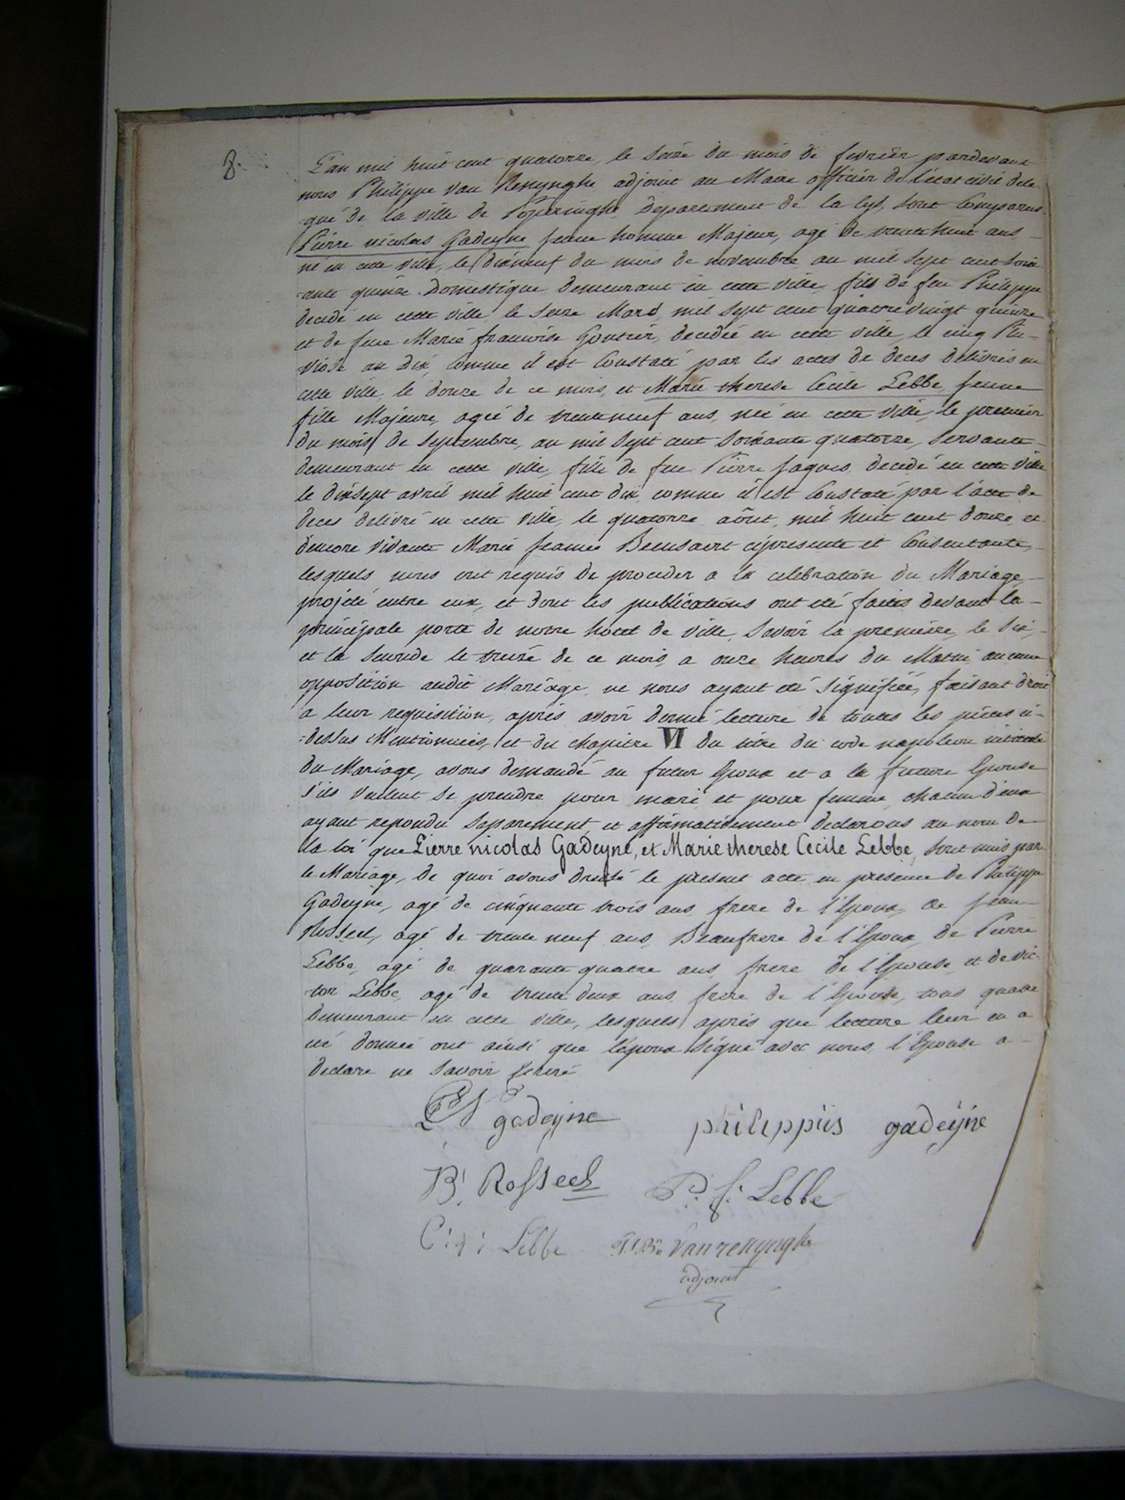 8.
L'an mil huit cent quatorze, le seize du mois de fevrier pardevant
nous Philippe van Renynghe adjoint au Maire officier de l'état civil dele-
-gué de la ville de Poperinghe Departement de la Lys, sont Comparus
Pierre nicolas Gadeyne jeune homme Majeur, agé de trente huit ans
né en cette ville, le dixneuf du mois de novembre an mil sept cent soix-
-ante quinze Domestique demeurant en cette ville fils de feu Philippe
decedé en cette ville le seize Mars mil sept cent quatre vingt quinze
et de feue Marie francoise Goutier, decedée en cette ville le cinq Plu-
viose an dix, comme il est Constaté par les actes de deces delivrés en
cette ville, le douze de ce mois, et Marie therese Cecile Lebbe jeune
fille Majeure, agée de trente neuf ans, née en cette ville, le premier
du mois de Septembre, an mil sept cent soixante quatorze, servante
demeurant en cette ville, fille de feu Pierre Jaques, decedé en cette ville
le dixsept avril mil huit cent dix, comme il est Constaté par l'acte de
deces delivré en cette ville, le quatorze aôut, mil huit cent douze et
d'encore vivante Marie Beensaert ciprésente et Consentante,
lesquels nous ont requis de proceder a la celebration du Mariage,
projété entre eux, et dont les publications ont été faites devant la
principale porte de notre hotel de ville, Savoir la première, le six,
et la seconde le treize de ce mois, a onze heures du Matin aucune
opposition audit Mariage, ne nous ayant été signifiée, faisant droit
a leur requisition, après avoir donné lecture de toutes les pièces ci-
=dessus Mentionnées, et du chapitre VI du titre du code napoleon intitulé
du Mariage, avons demandé au futur Epoux et a la future Epouse
s'ils veullent se prendre pour mari et pour femme, chacun d'eux
ayant repondu separement et affirmativement declarons au nom de
la loi que Pierre nicolas Gadeyne, et Marie therese Cecile Lebbe, sont unis par
le Mariage, de quoi avons dressé le present acte en présence de Philippe
Gadeyne, agé de cinquante trois ans, frere de l'Epoux, de Jean
Rosseel, agé de trente neuf ans, Beaufrere de l'Epoux, de Pierre
Lebbe, agé de quarante quatre ans, frere de l'Epouse, et de vic-
tor Lebbe, agé de trente deux ans, frere de l'Epouse, tous quatre
demeurant en cette ville, lesquels après que lecture leur en a
été donnée ont ainsi que l'époux signé avec nous, l'Epouse a
declaré ne savoir
gadeyne philippüs gadeÿne
B. Rosseel P: J: Lebbe
Lebbe vanrenynghe
adjoint